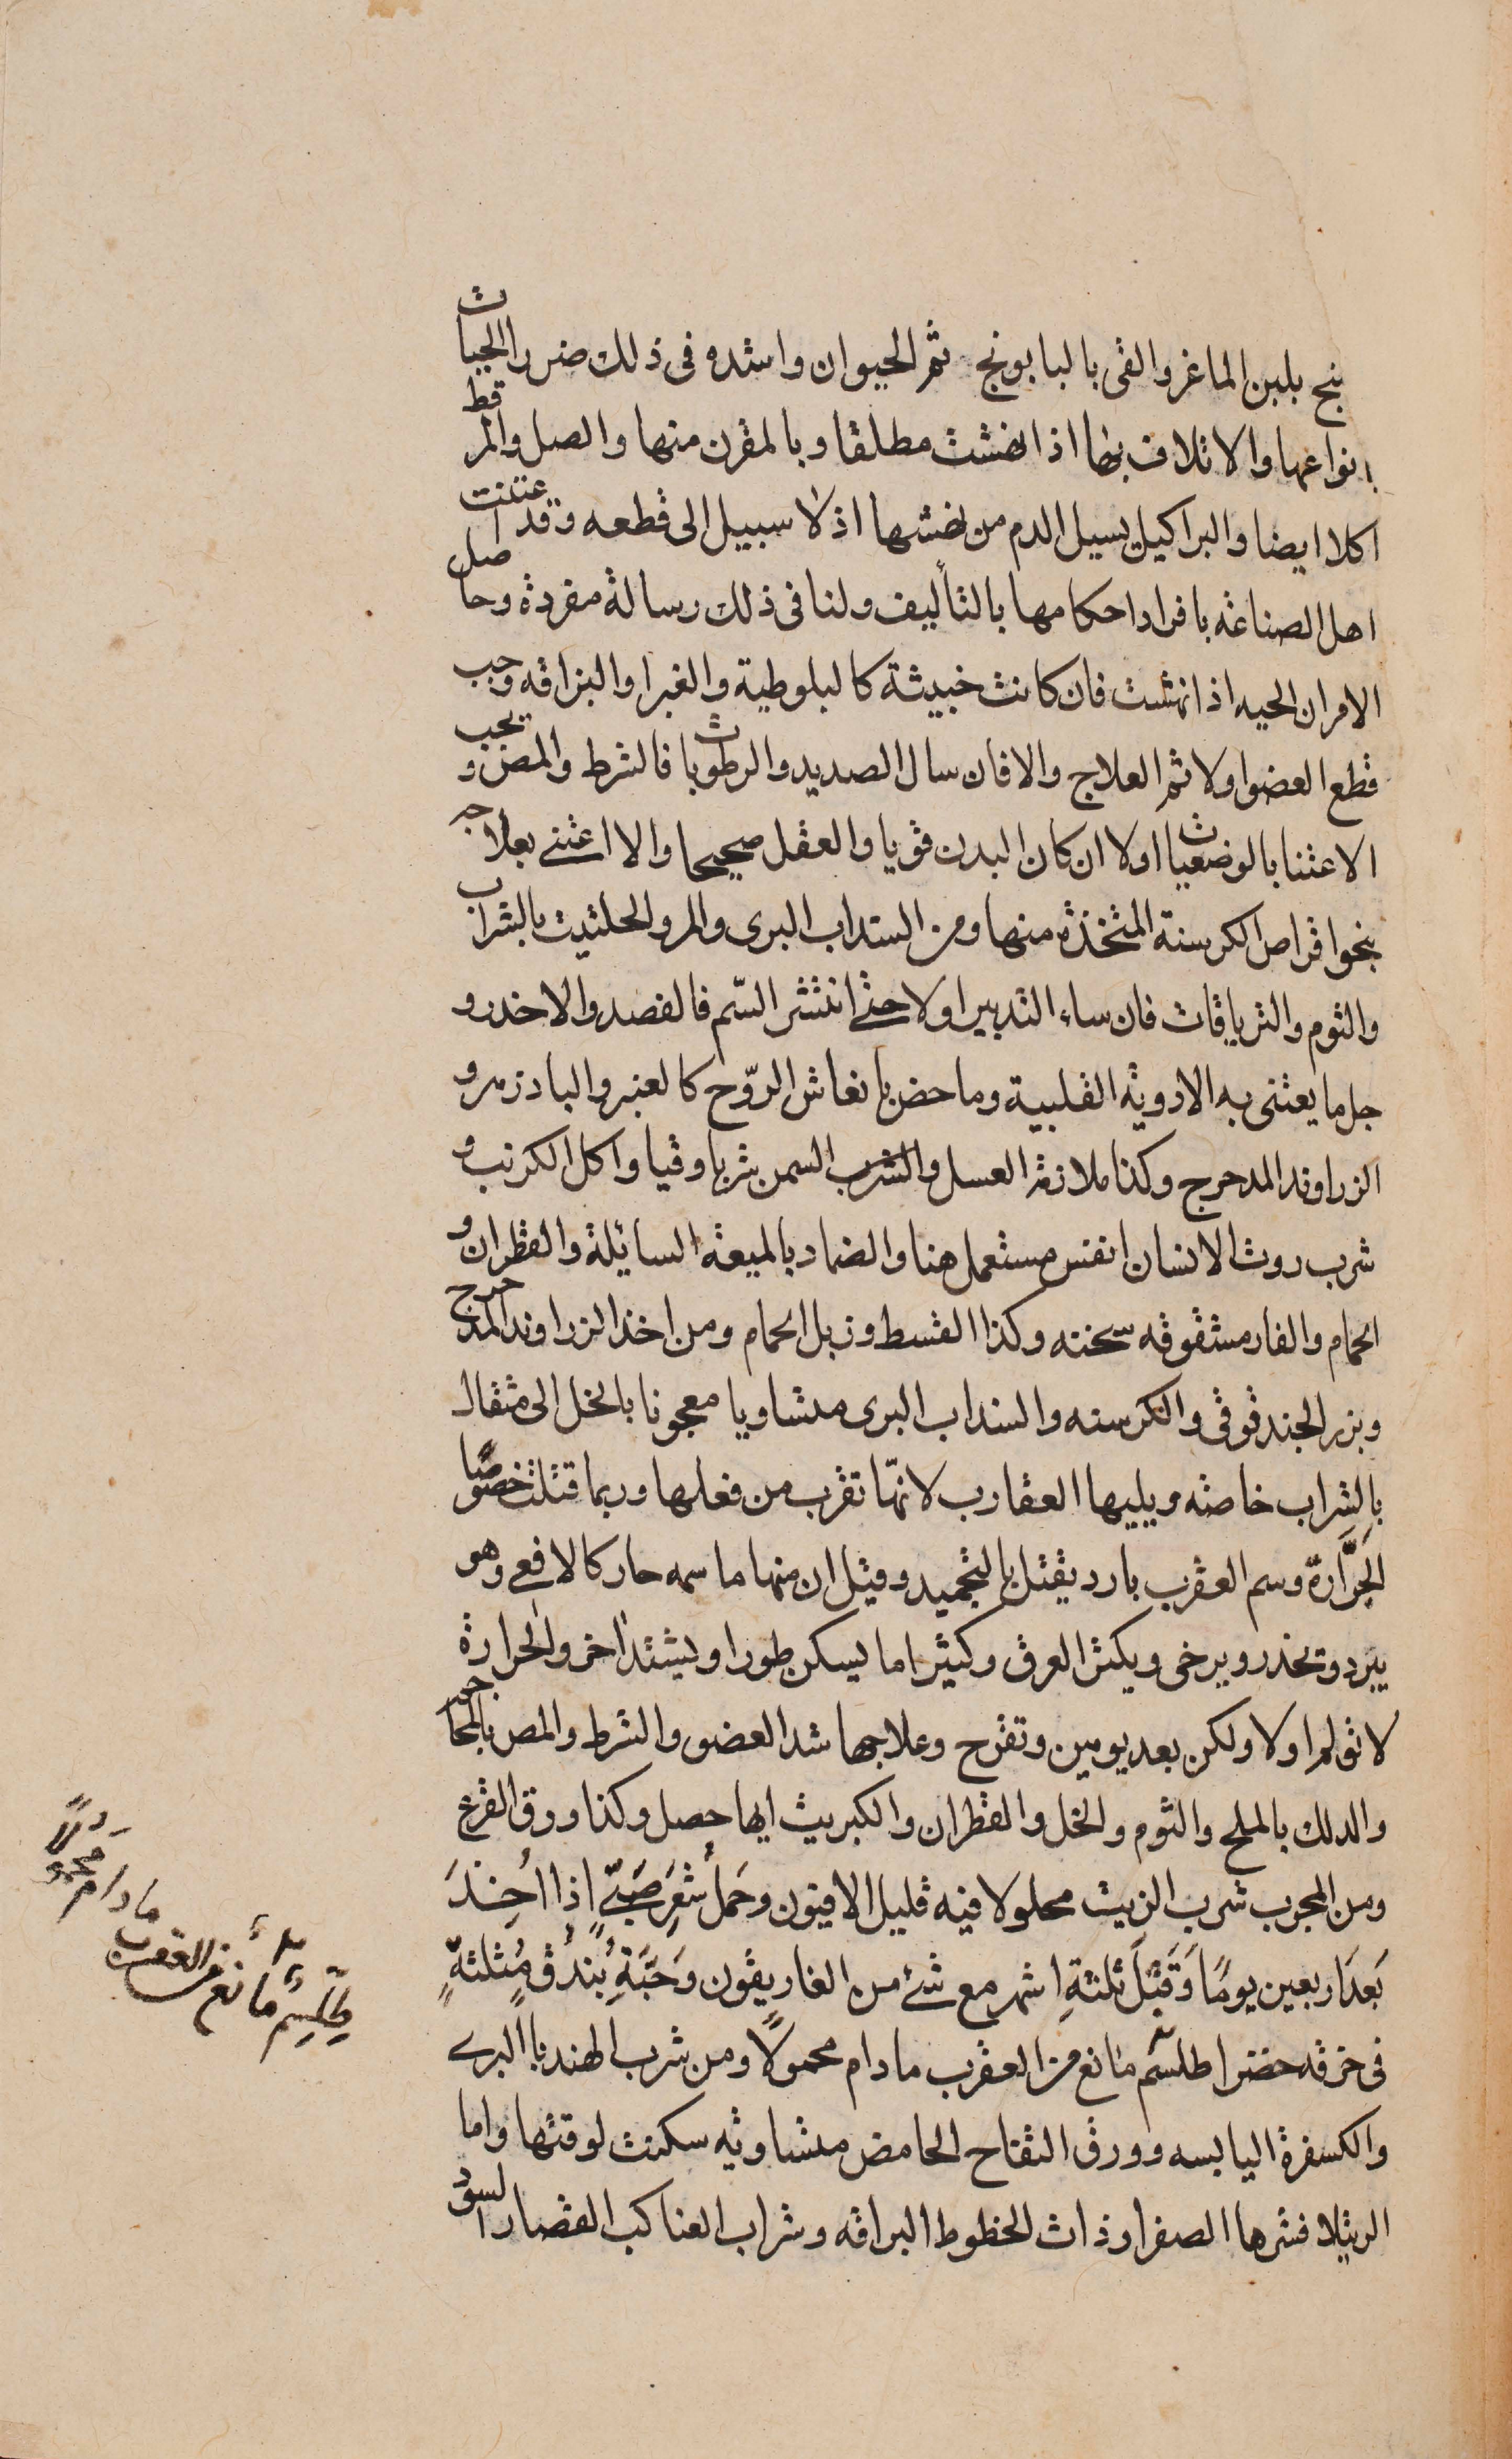 بنج بلبن الماعز والقى بالبابونج ثم الحيوان واشده فى ذلك ضررا الحيات
بانواعها والاتلاف بها اذا نهشت مطلقا وبالمقرن منها والصل والمرقط
اكلا ايضا والبراكيل يسيل الدم من نهشها اذ لا سبيل الى قطعه وقد اعتنت
اهل الصناعه بافراد احكامها بالتأليف ولنا فى ذلك رسالة مفردة وحاصل
الامر ان الحيه اذا نهشت فان كانت خبيثة كالبلوطية والغبرا والبزاقه وجب
قطع العضو اولا ثم العلاج والا فان سال الصديد والرطوبات فالشرط والمص ويجب
الاعتنا بالوضعيات اولا ان كان البدن قويا والعقل صحيحا والا اعتنى بعلاجه
بنحو اقراص الكرسنة المتخذة منها ومن السداب البرى والمر والحلتيت بالشراب
والثوم والترياقات فان ساء التدبير اولا حتى انتشر السّم فالفصد والاخدر و
جل ما يعتنى به الادوية القلبية وما حض بانعاش الروّح كالعنبر والبادزهر و
الزراوند المدحرج وكذا ملازمة العسل والشرب السمن شربا وقيا واكل الكرنب و
شرب روث الانسان انفس مستعمل هنا والضماد بالميعه السايلة والقطران و
الحمام والفار مشقوقه سخنه وكذا القسط وزبل الحمام ومن اخذ الزراوند المدحرج
وبزر الحندقوقى والكرسنه والسنداب البرى متساويا معجونا بالخل الى مثقال
بالشراب خاصه ويليها العقارب لانهّا تقرب من فعلها وربما قتلت خصوصًا
الجَرَّارة وسم العقرب بارد يقتل بالتجميد وقيل ان منها ما سمه حار كالافعى وهو
يبرد وتخدر ويرخى ويكثر العرق وكثيرا ما يسكن طورا ويشتد اخر والحرارة
لا تؤلم اولا ولكن بعد يومين وتقرح وعلاجها شد العضو والشرط والمص بالمحاجم
والدلك بالملح والثوم والخل والقطران والكبريت ايها حصل وكذا ورق القرع
ومن المجرب شرب الزيت محلولا فيه قليل الافيون وحَملُ شَعرِ صَبىّ إذا اُخِذَ
بَعدَ اربعين يومًا وَقَبْلَ ثلثةِ اشهر مع شئ من الغاريقون وَحَبَّةِ بُندُق مُثلثةٍ
فى خرقه خضرا طلسّم مانع من العقرب ما دام محمولًا ومن شرب الهندبا البرى
والكسفرة اليابسه وورق التفاح الحامض متساويه سكنت لوقتها واما
الرتيلا فشرها الصفرا وذات الخطوط البراقه وشراب العناكب القصار السود
طِلّسِمٌ مانع من العقرب
ما دام محمولًا